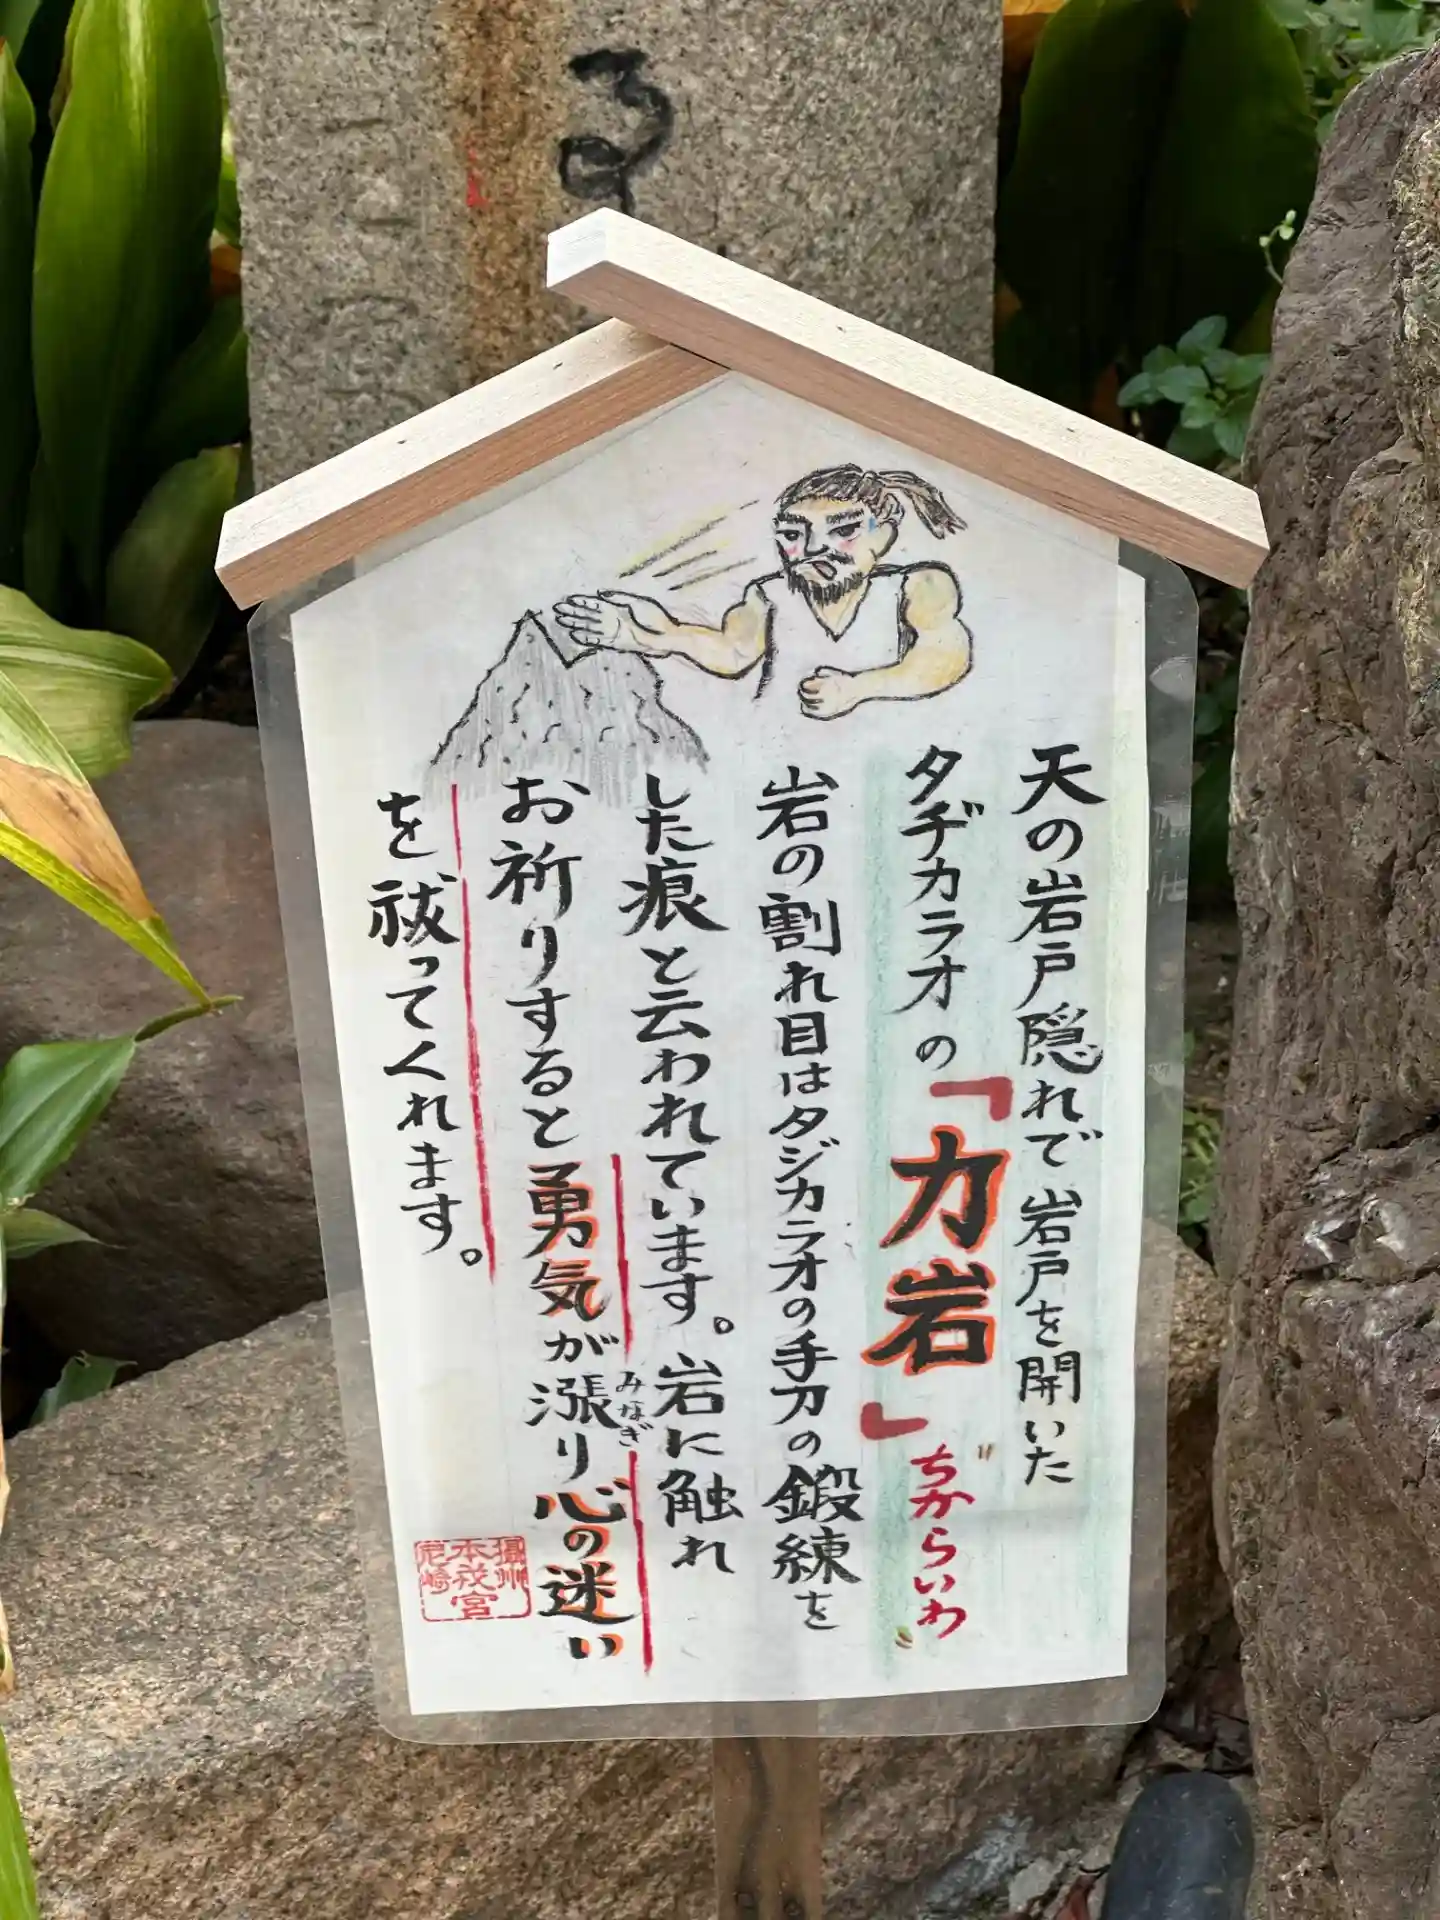 天の岩戸隠れで岩戸を開いた
タヂカラオの「力岩」
"ちからいわ"
岩の割れ目はタジカラオの手刀の鍛練を
した痕と云われています。岩に触れ
お祈りすると勇気が漲り心の迷い
みなぎ
を祓ってくれます。
攝州
本戎宮
尼崎
る